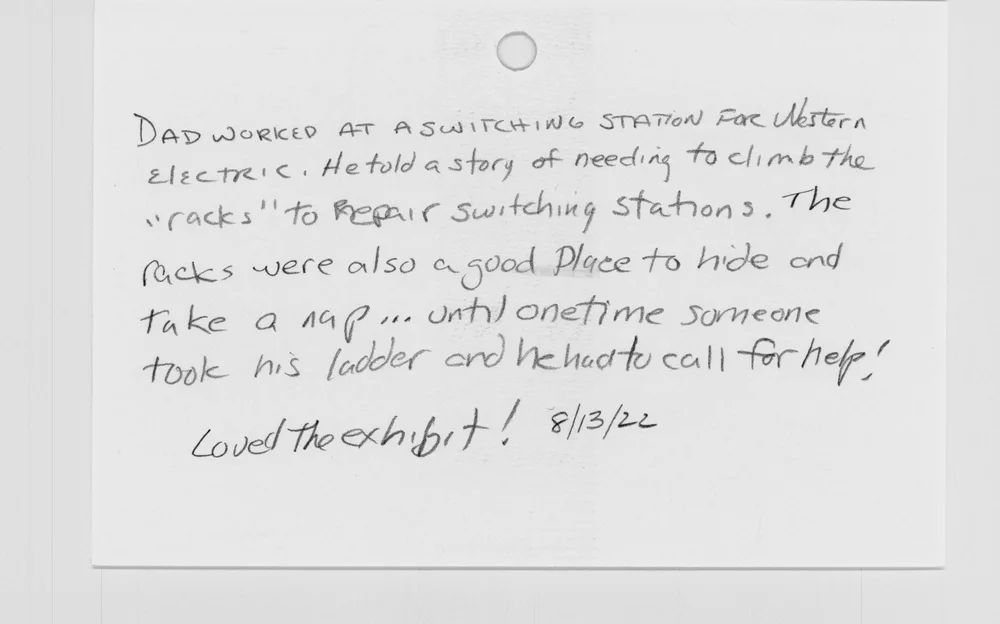 DAD WORKED AT A SWITCHING STATION FOR Western
Electric. He told a story of needing to climb the
"racks" to Repair switching stations. The
racks were also a good Place to hide and
take a nap... until onetime someone
took his ladder and he had to call for help!
Loved the exhibit! 8/13/22